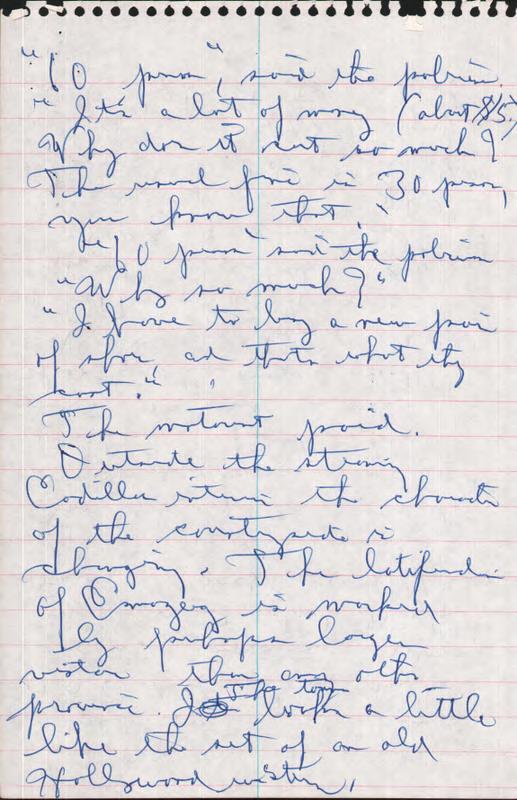 "60 pesos", said the policeman.
"It's a lot of money (about $5.)
Why does it cost so much?
The usual fine is 30 pesos,
you know that."
"60 pesos" said the policeman
"Why so much?"
"I have to buy a new pair
of shoes and thats what they
cost."
The motorist paid.
Outside the steaming
Cadillac interior the character
of the countryside is
changing. The latifundia
of is marked
by perhaps larger
vistas than any other
province. The town looks a little
like the set of an old
Hollywood western,